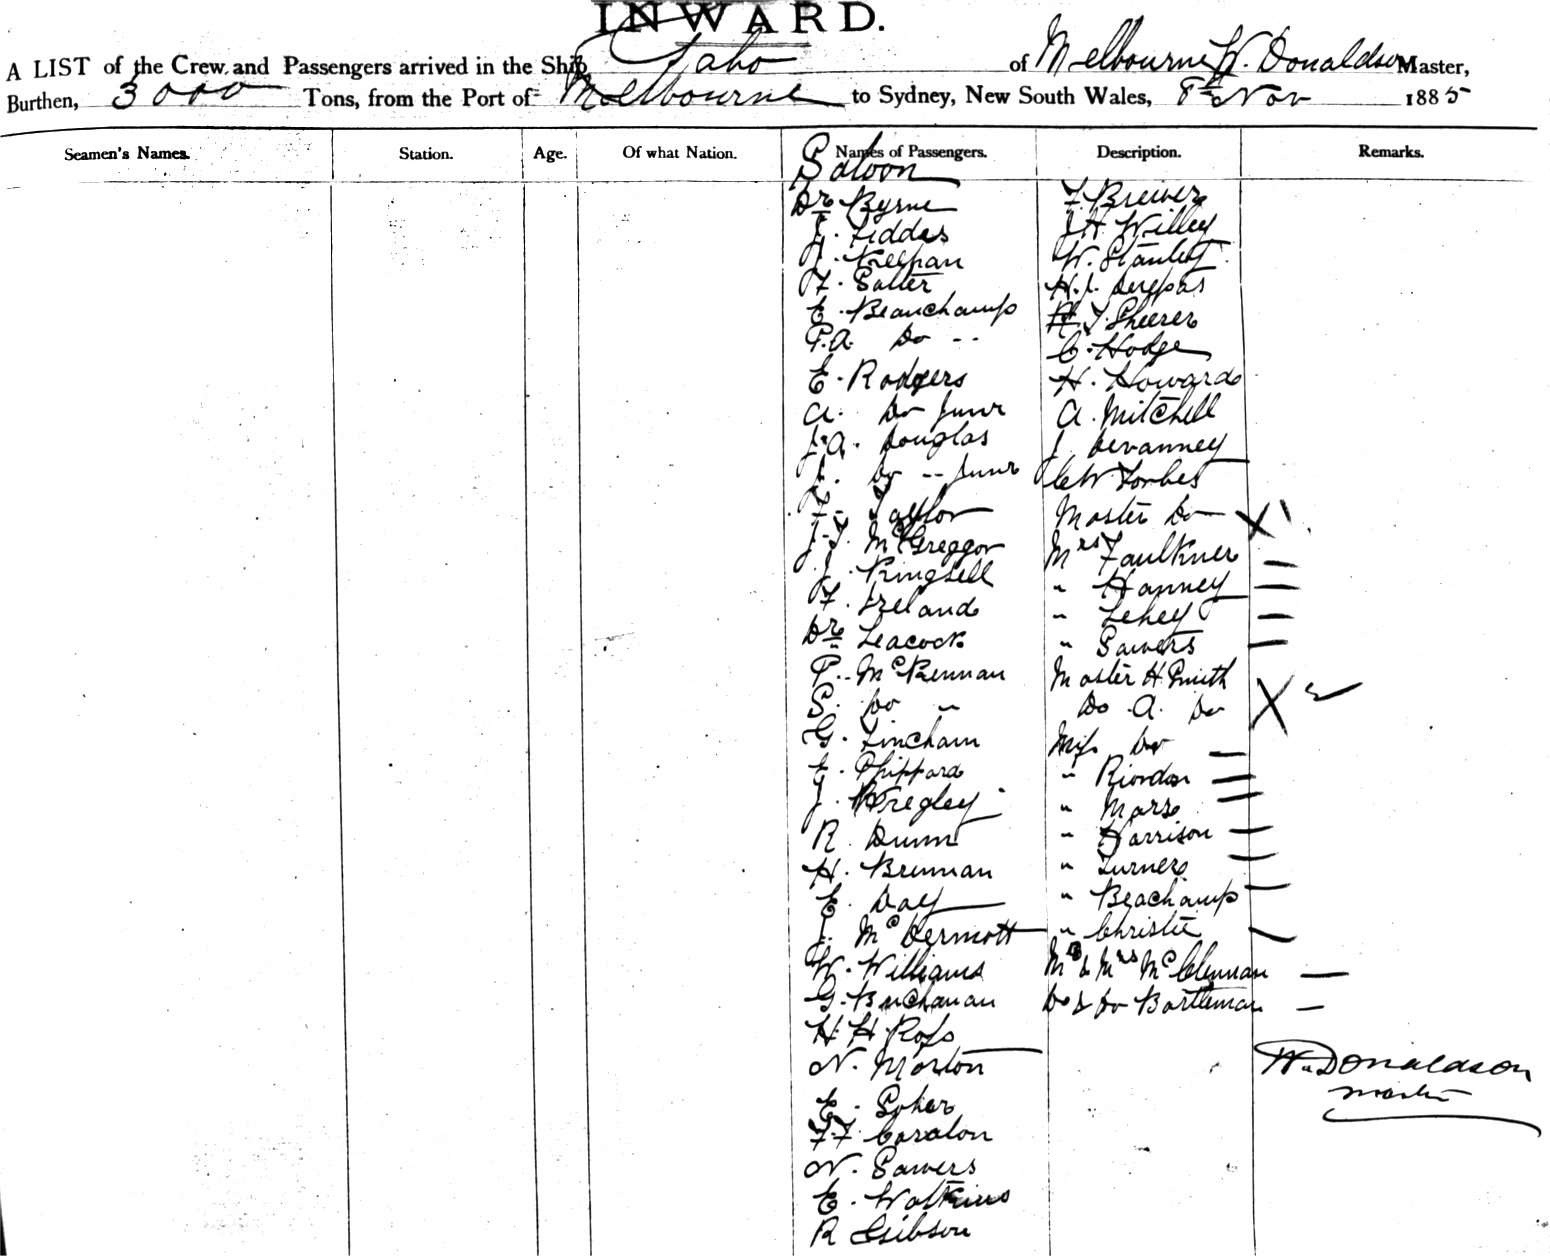 INWARD.
A LIST of the Crew and Passengers arrived in the Ship of Melbourne W. Donaldson Master,
Burthen, 3000 Tons, from the Port of Melbourne to Sydney, New South Wales, 8th Nov 1885
Seamen's Names. Station. Age. Of what Nation. Names of Passengers. Description. Remarks.
Saloon
Dr Byrne
J. Fiddes
F. Salter
E. Beauchamp
P.A. Do --
E. Rodgers
A. Do Junr
J.A. Douglas
J. Do -- Junr
F. Taylor
J.T. McGreggor
J. Kingsell
F. Ireland
Dr Leacock
P. McKennan
S. Do "
G. Lincham
E. Shippard
J. Wregley
R. Dunn
H. Brennan
E. Day
J. McDermott
W. Williams
G. Buchanan
H. H. Ross
N. Morton
E. Soher
F.F.
N. Sawers
E. Watkins
R Gibson
F. Brewer
J H. Willey
W. Stanley
H.J.
T. Sheerer
C. Hodge
H. Howard
A. Mitchell
J. Devanney
C W Forbes
Master Do X 1
Mrs Faulkner —
" Hanney —
" Lehey —
" Sawers —
Master H Smith
Do A. Do X 2
Miss Do —
" Riordan —
" Mars —
" Harrison —
" Turner —
" Beachamp —
" Christie —
Mr & Mrs McClennan —
Do & Do Bartleman —
W. Donaldson
Master